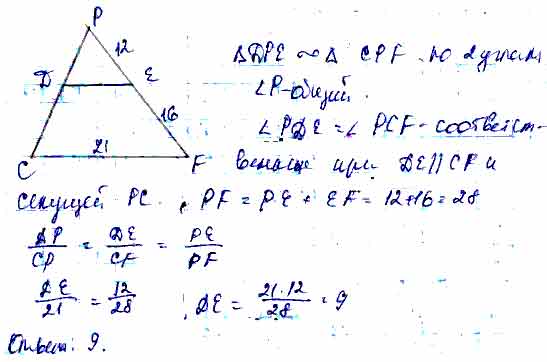 P
12
D E
16
21
C F
ΔDPE ~ Δ CPF по 2 углам
∠P-общий.
∠PDE = ∠PCF - соответст-
венные при DE || CF и
секущей PC. PF = PE + EF = 12+16 = 28
DP/CP = DE/CF = PE/PF
DE/21 = 12/28 ; DE = 21·12/28 = 9
Ответ: 9.